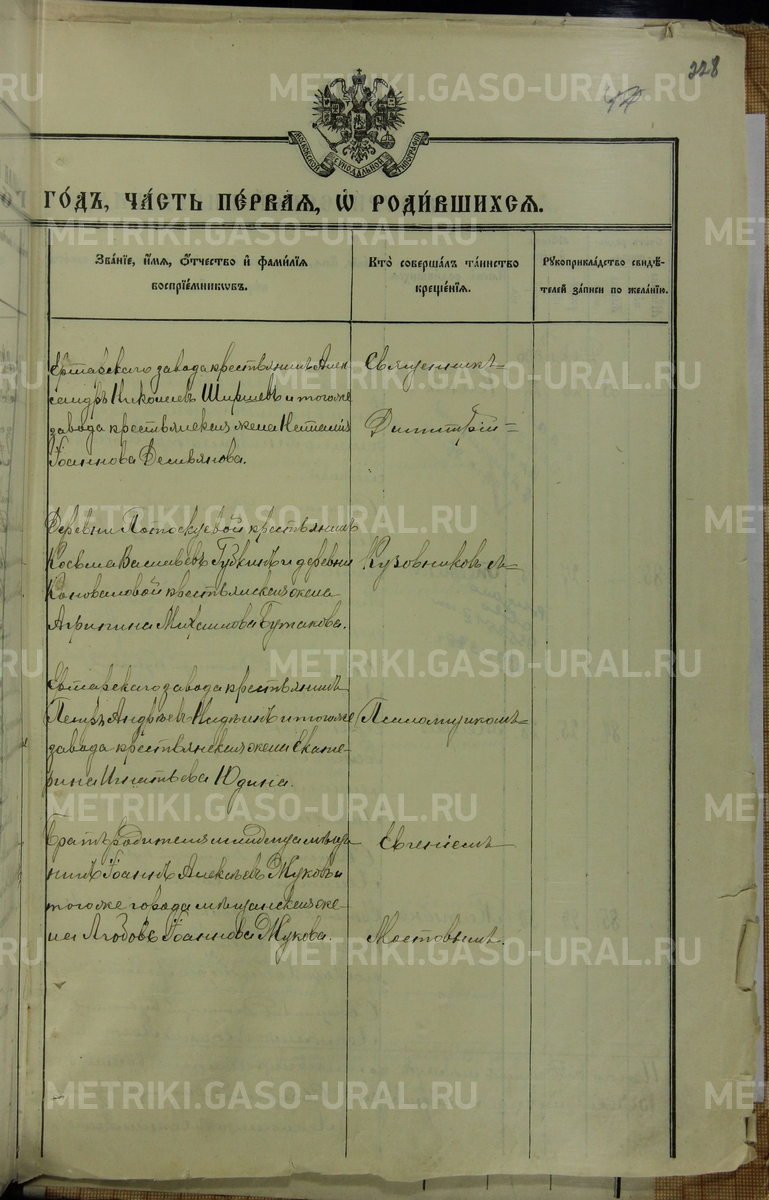 228
МОСКОВСКОЙ СѴНОДАЛЬНОЙ ТИПОГРАФІИ
го́дъ, ча́сть пе́рваѧ, ѡ҆ роди́вшихсѧ.
Зва́нїе, и҆́мѧ, ѻ҆́тчество и҆ фами́лїѧ
воспрїе́мникѡвъ.
Кто̀ соверша́лъ та́инство
креще́нїѧ.
Рꙋкоприкла́дство свидѣ́-
телей за́писи по жела́нїю.
завода крестьянинъ Алек-
сандръ Николаевъ Ширяевъ и тогоже
завода крестьянская жена Наталія
Іоаннова Демьянова.
Священникъ
Димитрій
Деревни Потоскуевой крестьянинъ
Косьма Васильевъ Губкинъ и деревни
Коноваловой крестьянская жена
Агрипина Михаилова Бутакова.
Кузовниковъ съ
завода крестьянинъ
Петръ Андреевъ и тогоже
завода крестьянская жена Екате-
рина Игнатьева Юдина.
Псаломщикомъ
Братъ родителя младенца мѣща-
нинъ Іоаннъ Алексѣевъ Жуковъ и
тогоже города мѣщанская же-
на Любовь Іоаннова Жукова.
Евгеніемъ
Мостовымъ.
METRIKI.GASO-URAL.RU